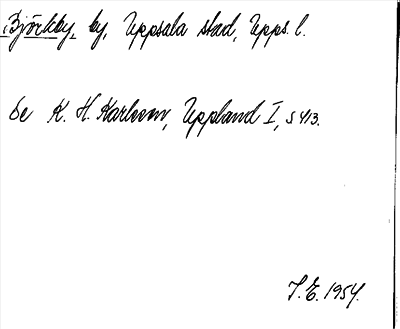 Björkby, by, Uppsala stad, Upps. l.
Se K. H. Karlsson, Uppland I, s 413.
J. E. 1954.